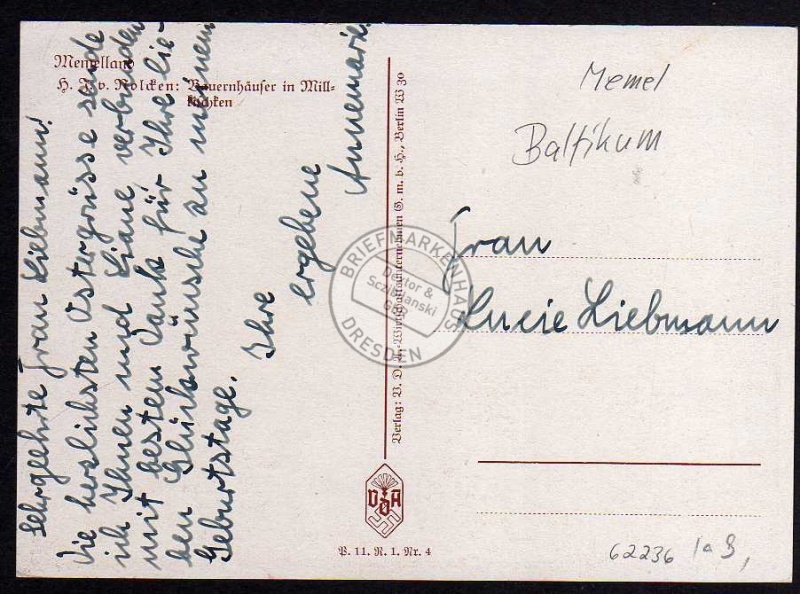 Memelland
H. J. v. Rolcken: Bauernhäuser in Mill-
kischken
Sehrgeehrte Frau Liebmann!
Die herzlichsten Ostergrüsse sende
ich Ihnen und Liane verbunden
mit bestem Dank für Ihre lie-
ben Glückwünsche an meinem
Geburtstage.
Ihre
ergebene
Annemarie.
Verlag: V. D. A.-Wirtschaftsunternehmen G. m. b. H., Berlin W 30
VDA
P. 11. R. 1. Nr. 4
Memel
Baltikum
Frau
Lucie Liebmann
62236 1a
BRIEFMARKENHAUS
Dextor &
Sczibilanski
GbR
DRESDEN